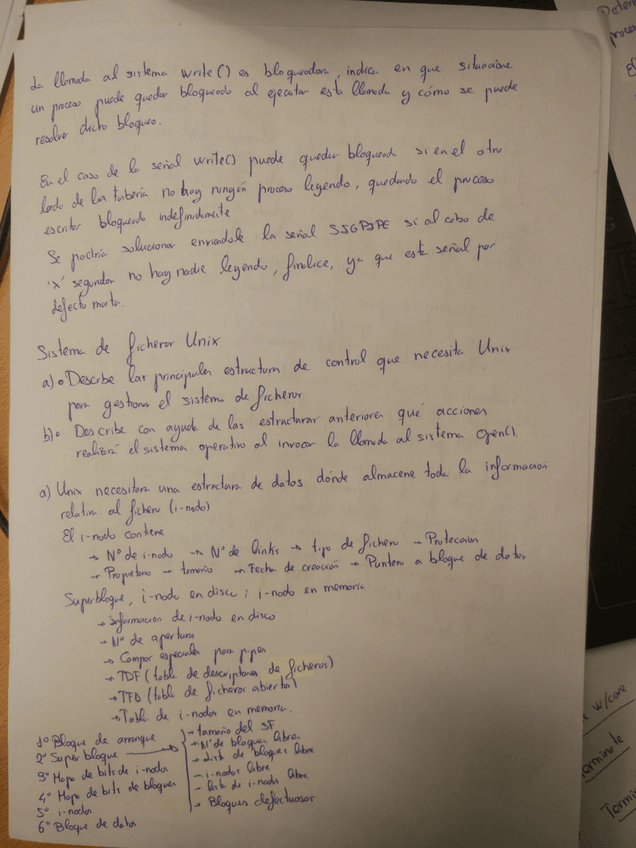 La llamada al sistema write() es bloqueadora, indica en que situacione
un proceso puede quedar bloqueado al ejecutar esta llamada y cómo se puede
resolver dicho bloqueo.
En el caso de la señal write() puede quedar bloqueada si en el otro
lado de la tubería no hay ningún proceso leyendo, quedando el proceso
escritor bloqueado indefinidamente
Se podría solucionar enviandole la señal SIGPIPE si al cabo de
'x' segundos no hay nadie leyendo, finalice, ya que esta señal por
defecto mata.
Sistema de ficheros Unix
a) • Describe las principales estructura de control que necesita Unix
para gestionar el sistema de ficheros
b) • Describe con ayuda de las estructuras anteriores qué acciones
realizará el sistema operativo al invocar la llamada al sistema open().
a) Unix necesitara una estructura de datos dónde almacene toda la información
relativa al fichero (i-nodo)
El i-nodo contiene
→ Nº de i-nodo → Nº de links → tipo de fichero → Proteccion
→ Propietario → tamaño → Fecha de creación → Puntero a bloque de datos
Superbloque, i-nodo en disco, i-nodo en memoria.
→ Informacion de i-nodo en disco
→ Nº de apertura
→ Campos especiales para pipes
→ TDF (tabla de descriptores de ficheros)
→ TFA (tabla de ficheros abiertos)
→ Tabla de i-nodos en memoria.
1º Bloque de arranque → tamaño del SF
2º Super bloque → Nº de bloques libres
3º Mapa de bits de i-nodos → lista de bloques libre
4º Mapa de bits de bloques → i-nodos libre
5º i-nodos → lista de i-nodos libre
6º Bloque de datos → Bloques defectuosos
Deter
proces
w/core
Terminate
Termi